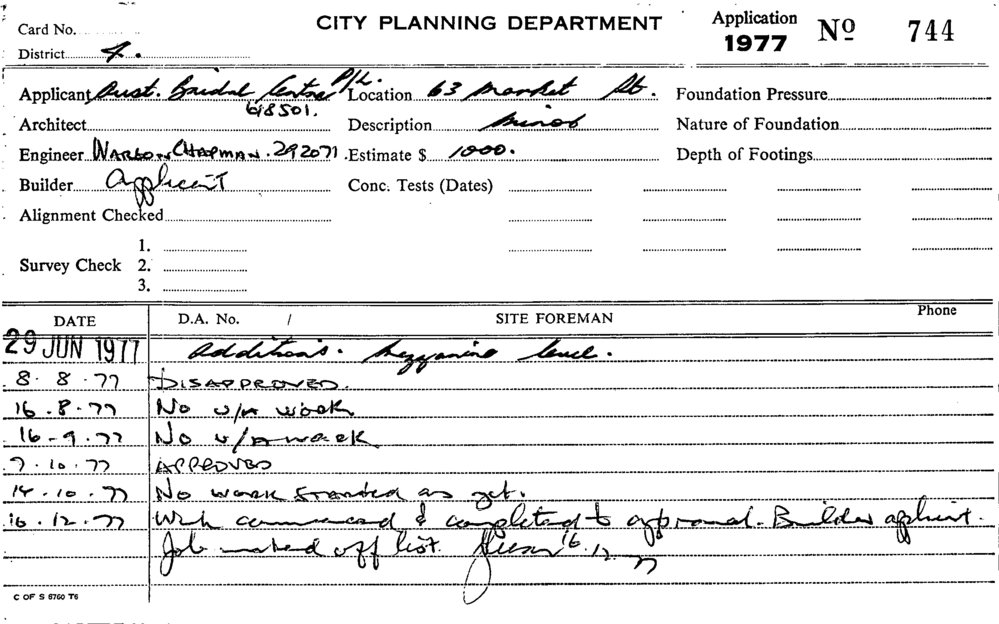 Card No.
CITY PLANNING DEPARTMENT
Application 1977 No 744
District 4.
Applicant Aust. Bridal Centre P/L. Location 63 Market St. Foundation Pressure
618501.
Architect Description Minor Nature of Foundation
Engineer WARGON CHAPMAN. 292071. Estimate $ 1000. Depth of Footings
Builder Applicant Conc. Tests (Dates)
Alignment Checked
1.
Survey Check 2.
3.
DATE D.A. No. / SITE FOREMAN Phone
29 JUN 1977 Additions. Mezzanine level.
8.8.77 DISAPPROVED.
16.8.77 No u/a work
16-9.77 No u/a work
7.10.77 APPROVED
14.10.77 No work started as yet.
16.12.77 Work commenced & completed to approval. Builder applicant.
Job marked off list. 16.12.77
C OF S 6760 T6